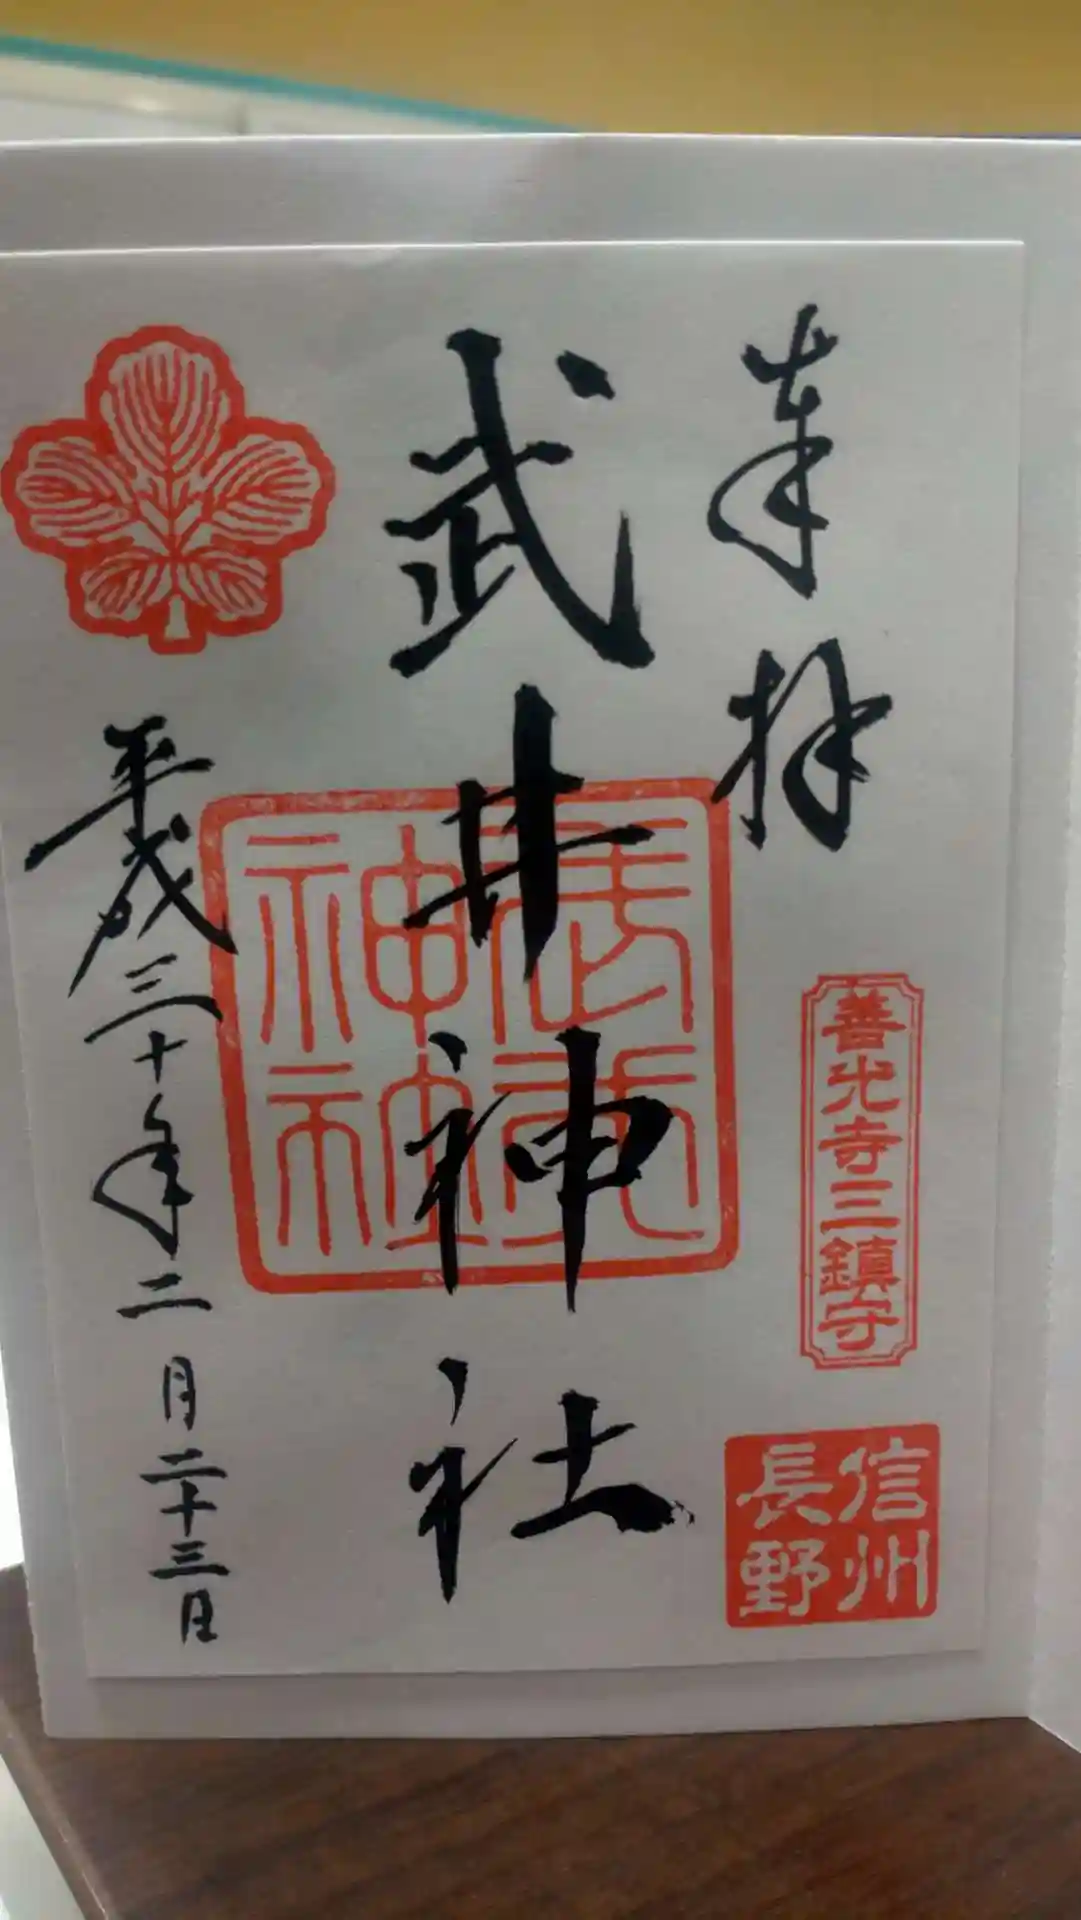 奉拝
善光寺三鎮守
信州
長野
武井神社
武井
神社
平成三十年二月二十三日